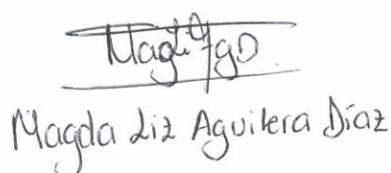 Magda Liz Aguilera Díaz